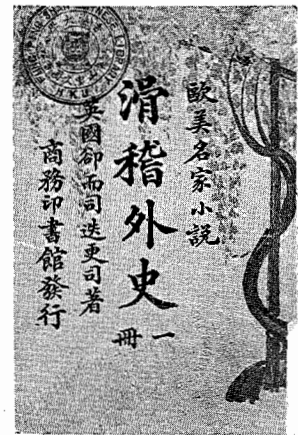 歐美名家小説
滑稽外史
一冊
英國卻而司迭更司著
商務印書館發行
HKU